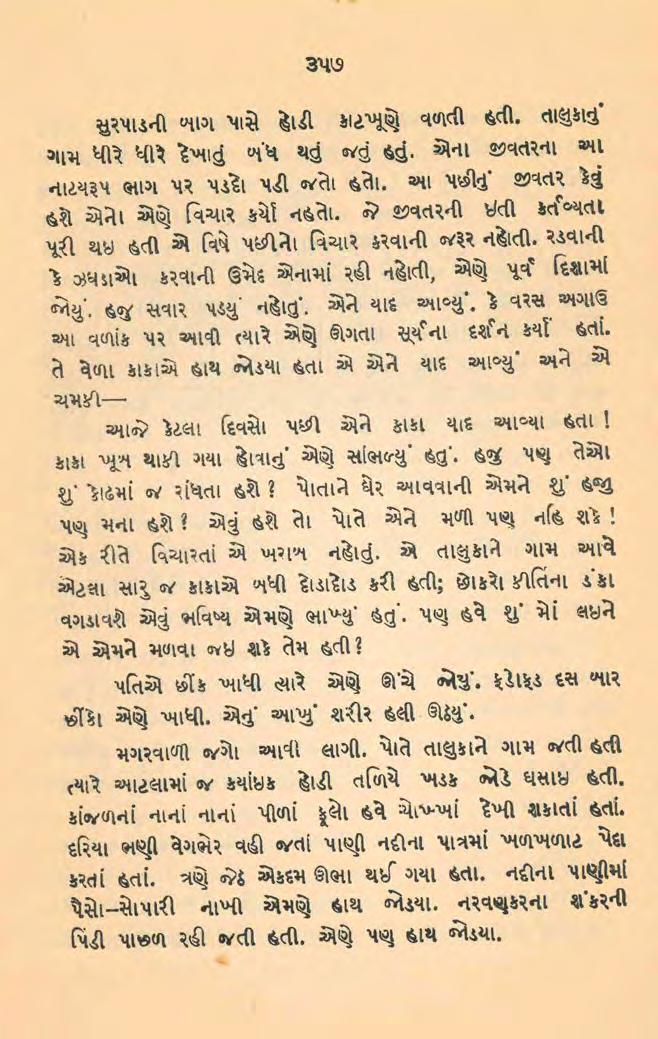 ૩૫૭
સુરપાડની બાગ પાસે હોડી કાટખૂણે વળતી હતી. તાલુકાનું
ગામ ધીરે ધીરે દેખાતું બંધ થતું જતું હતું. એના જીવતરના આ
નાટયરૂપ ભાગ પર પડદો પડી જતો હતો. આ પછીનું જીવતર કેવું
હશે એનો એણે વિચાર કર્યો નહતો. જે જીવતરની ઇતી કર્તવ્યતા
પૂરી થઇ હતી એ વિષે પછીનો વિચાર કરવાની જરૂર નહોતી. રડવાની
કે ઝઘડાઓ કરવાની ઉમેદ એનામાં રહી નહોતી, એણે પૂર્વ દિશામાં
જોયું. હજુ સવાર પડયું નહોતું. એને યાદ આવ્યું. કે વરસ અગાઉ
આ વળાંક પર આવી ત્યારે એણે ઊગતા સૂર્યના દર્શન કર્યાં હતાં.
તે વેળા કાકાએ હાથ જોડયા હતા એ એને યાદ આવ્યું અને એ
ચમકી—
આજે કેટલા દિવસો પછી એને કાકા યાદ આવ્યા હતા !
કાકા ખૂબ થાકી ગયા હોવાનું એણે સાંભળ્યું હતું. હજુ પણ તેઓ
શું કોઢમાં જ રાંધતા હશે ? પોતાને ઘેર આવવાની એમને શું હજી
પણ મના હશે ? એવું હશે તો પોતે એને મળી પણ નહિ શકે !
એક રીતે વિચારતાં એ ખરાબ નહોતું. એ તાલુકાને ગામ આવે
એટલા સારુ જ કાકાએ બધી દોડાદોડ કરી હતી; છોકરો કીર્તિના ડંકા
વગડાવશે એવું ભવિષ્ય એમણે ભાખ્યું હતું. પણ હવે શું મોં લઇને
એ એમને મળવા જઇ શકે તેમ હતી ?
પતિએ છીંક ખાધી ત્યારે એણે ઊંચે જોયું. ફડોફડ દસ બાર
છીંકો એણે ખાધી. એનું આખું શરીર હલી ઊઠયું.
મગરવાળી જગો આવી લાગી. પોતે તાલુકાને ગામ જતી હતી
ત્યારે આટલામાં જ કયાંઇક હોડી તળિયે ખડક જોડે ઘસાઇ હતી.
કાંજળનાં નાનાં નાનાં પીળાં ફૂલો હવે ચોખ્ખાં દેખી શકાતાં હતાં.
દરિયા ભણી વેગભેર વહી જતાં પાણી નદીના પાત્રમાં ખળખળાટ પેદા
કરતાં હતાં. ત્રણે જેઠ એકદમ ઊભા થઈ ગયા હતા. નદીના પાણીમાં
પૈસો–સોપારી નાખી એમણે હાથ જોડયા. નરવણકરના શંકરની
પિંડી પાછળ રહી જતી હતી. એણે પણ હાથ જોડયા.